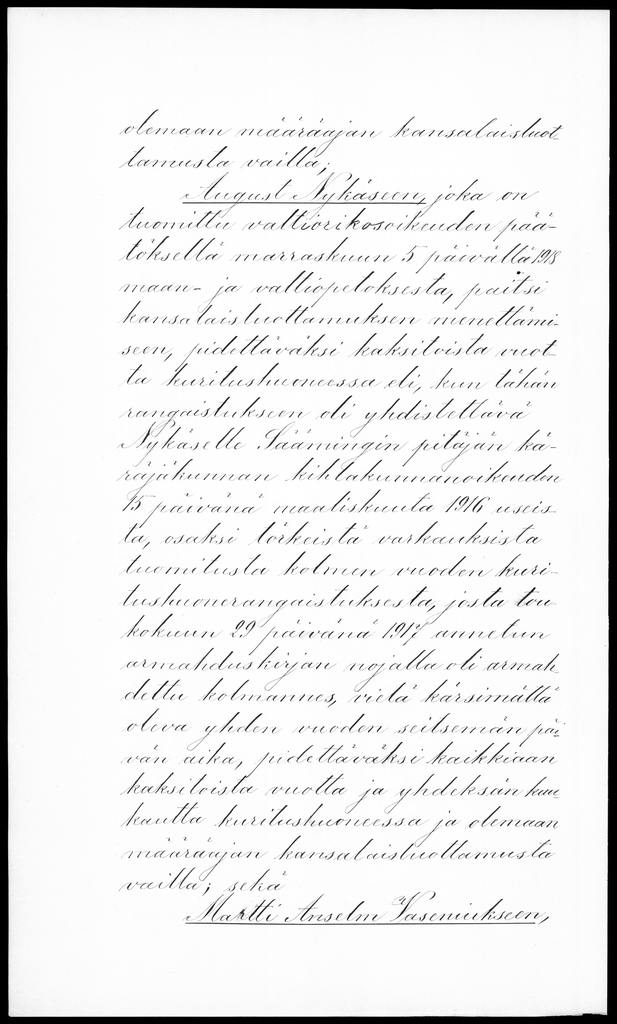 olemaan määräajan kansalaisluot-
tamusta vailla;
August Nykäseen, joka on
tuomittu valtiorikosoikeuden pää-
töksellä marraskuun 5 päivältä 1918
maan- ja valtiopetoksesta, paitsi
kansalaisluottamuksen menettämi-
seen, pidettäväksi kaksitoista vuot-
ta kuritushuoneessa eli, kun tähän
rangaistukseen oli yhdistettävä
Nykäselle Säämingin pitäjän kä-
räjäkunnan kihlakunnanoikeuden
15 päivänä maaliskuuta 1916 useis-
ta, osaksi törkeistä varkauksista
tuomitusta kolmen vuoden kuri-
tushuonerangaistuksesta, josta tou-
kokuun 29 päivänä 1917 annetun
armahduskirjan nojalla oli armah-
dettu kolmannes, vielä kärsimättä
oleva yhden vuoden seitsemän päi-
vän aika, pidettäväksi kaikkiaan
kaksitoista vuotta ja yhdeksän kuu-
kautta kuritushuoneessa ja olemaan
määräajan kansalaisluottamusta
vailla; sekä
Martti Anselm Vaseniukseen,